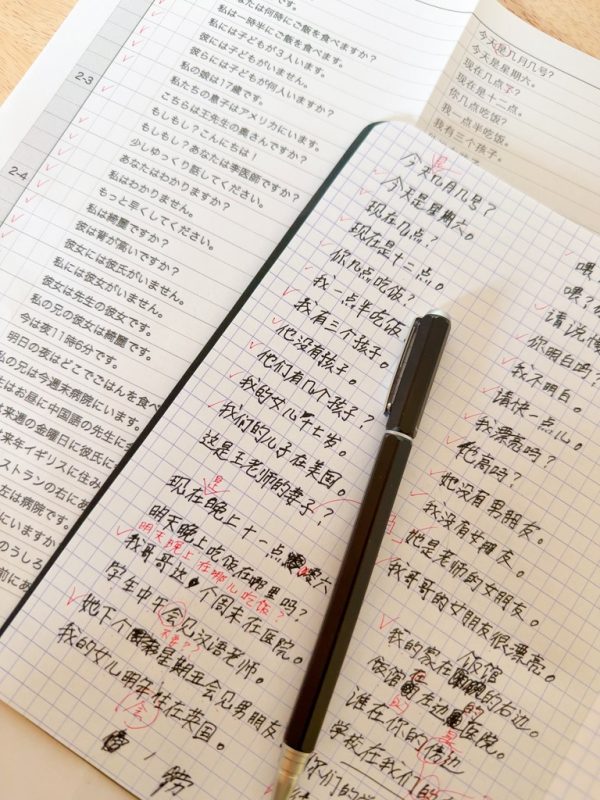 あなたは何時にご飯を食べますか？
私は一時半にご飯を食べます。
私には子どもが3人います。
彼には子どもがいません。
彼らには子どもが何人いますか？
私の娘は17歳です。
2-3
私たちの息子はアメリカにいます。
こちらは王先生の奥さんですか？
もしもし？こんにちは！
もしもし？あなたは李医師ですか？
少しゆっくり話してください。
あなたはわかりますか？
2-4
私はわかりません。
もっと早くしてください。
私は綺麗ですか？
彼は背が高いですか？
彼女には彼氏がいません。
私には彼女がいません。
彼女は先生の彼女です。
私の兄の彼女は綺麗です。
今は夜11時6分です。
明日の夜はどこでごはんを食べ
私の兄は今週末病院にいます。
はお昼に中国語の先生に
来週の金曜日に彼氏に
来年イギリスに住み
ストランの右にあ
左は病院です。
にいますか
のうしろ
前にあ
今天是几月几号？
今天是星期六。
现在几点？
现在是十二点。
你几点吃饭？
我一点半吃饭。
我有三个孩子。
是
今天几月几号？
今天是星期六。
现在几点？
现在是十二点。
你几点吃饭？
我一点半吃饭
我有三个孩子。
他没有孩子。
他们有几个孩子？
我的女儿十七岁。
我们的儿子在美国。
这是王老师的妻子？
是
现在晚上十一点六
明天晚上吃饭在哪里吗？
明天晚上在哪儿吃饭？
我哥哥这个周末在医院。
学生中午会见汉语老师。
她下个星期五会见男朋友
我的女儿明年住在英国。
会
喂
喂？
请说慢
你明白吗？
我不明白。
请快一点儿。
我漂亮吗？
他高吗？
她没有男朋友。
我没有女朋友。
她是老师的女朋友。
我哥哥的女朋友很漂亮。
饭馆
我的家在的右边。
饭馆在左边的医院。
的 是
谁在你的旁边
学校在我们的
你们的学